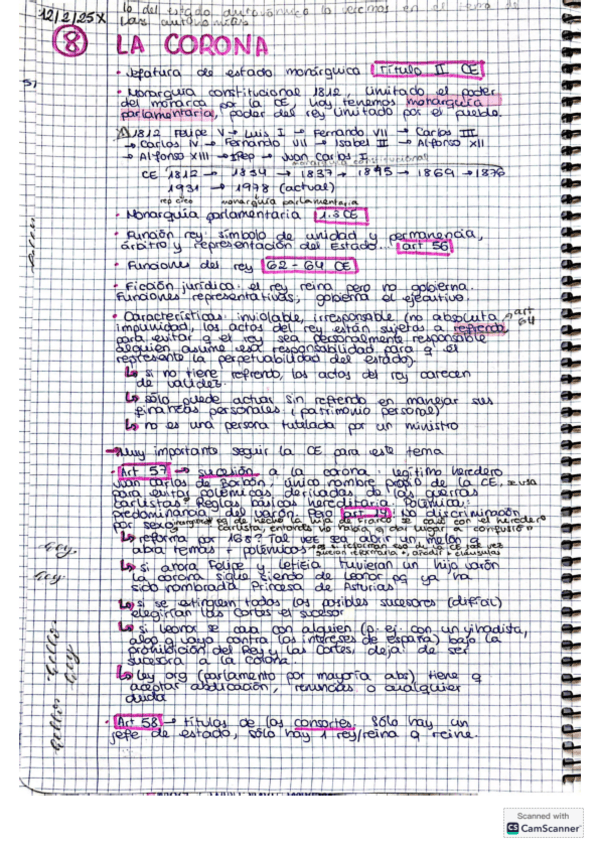 lo del estado autonómico lo veremos en el tema de
las autonomías
12/2/25 X
8 LA CORONA
· Jefatura de estado monárquica Título II CE
· Monarquía constitucional 1812, limitado el poder
del monarca por la CE, hoy tenemos monarquía
parlamentaria, poder del rey limitado por el pueblo.
1812 Felipe V → Luis I → Fernando VII → Carlos III
→ Carlos IV → Fernando VII → Isabel II → Alfonso XII
→ Alfonso XIII → IRep → Juan Carlos I
monarquía constitucional
CE 1812 → 1834 → 1837 → 1845 → 1869 → 1876
1931 → 1978 (actual)
monarquía parlamentaria
· Monarquía parlamentaria 1.3 CE
· Función rey: símbolo de unidad y permanencia,
árbitro y representación del Estado... art 56
· Funciones del rey 62-64 CE
· Ficción jurídica: el rey reina pero no gobierna.
Funciones representativas, gobierna el ejecutivo.
· Características: inviolable, irresponsable (no absoluta
impunidad, los actos del rey están sujetos a refrendo, art 64
para evitar q el rey sea personalmente responsable
alguien asume esa responsabilidad para q el
represente la perpetuabilidad del estado).
↳ si no tiene refrendo, los actos del rey carecen
de validez.
↳ sólo puede actuar sin refrendo en manejar sus
finanzas personales (patrimonio personal)
↳ no es una persona tutelada por un ministro
→ Muy importante seguir la CE para este tema
· Art 57 → sucesión a la corona: legítimo heredero
Juan Carlos de Borbón, único nombre propio de la CE, se usa
para evitar polémicas derivadas de las guerras
carlistas? Reglas básicas hereditaria. Polémica:
predominancia del varón. Pero art 14: no discriminación
por sexo. de hecho la hija de Franco se casó con el heredero
carlista, entonces no valía q dar lugar a confusión
↳ reforma por 168? Tal vez sea abrir un melón q
abra temas + polémicos
↳ si ahora Felipe y Leticia tuvieran un hijo varón
la corona sigue siendo de Leonor pq ya ha
sido nombrada Princesa de Asturias
↳ si se extinguen todos los posibles sucesores (difícil)
elegirían las Cortes el sucesor
↳ si Leonor se casa con alguien (p. ej. con un yihadista,
algo q vaya contra los intereses de España) bajo la
prohibición del Rey y las Cortes, deja de ser
sucesora a la corona.
↳ ley org (parlamento por mayoría abs) tiene q
aceptar abdicación, renuncias o cualquier
duda
· Art 58 → títulos de los consortes. Sólo hay un
jefe de estado, sólo hay 1 rey/reina q reine.
Scanned with
CS CamScanner